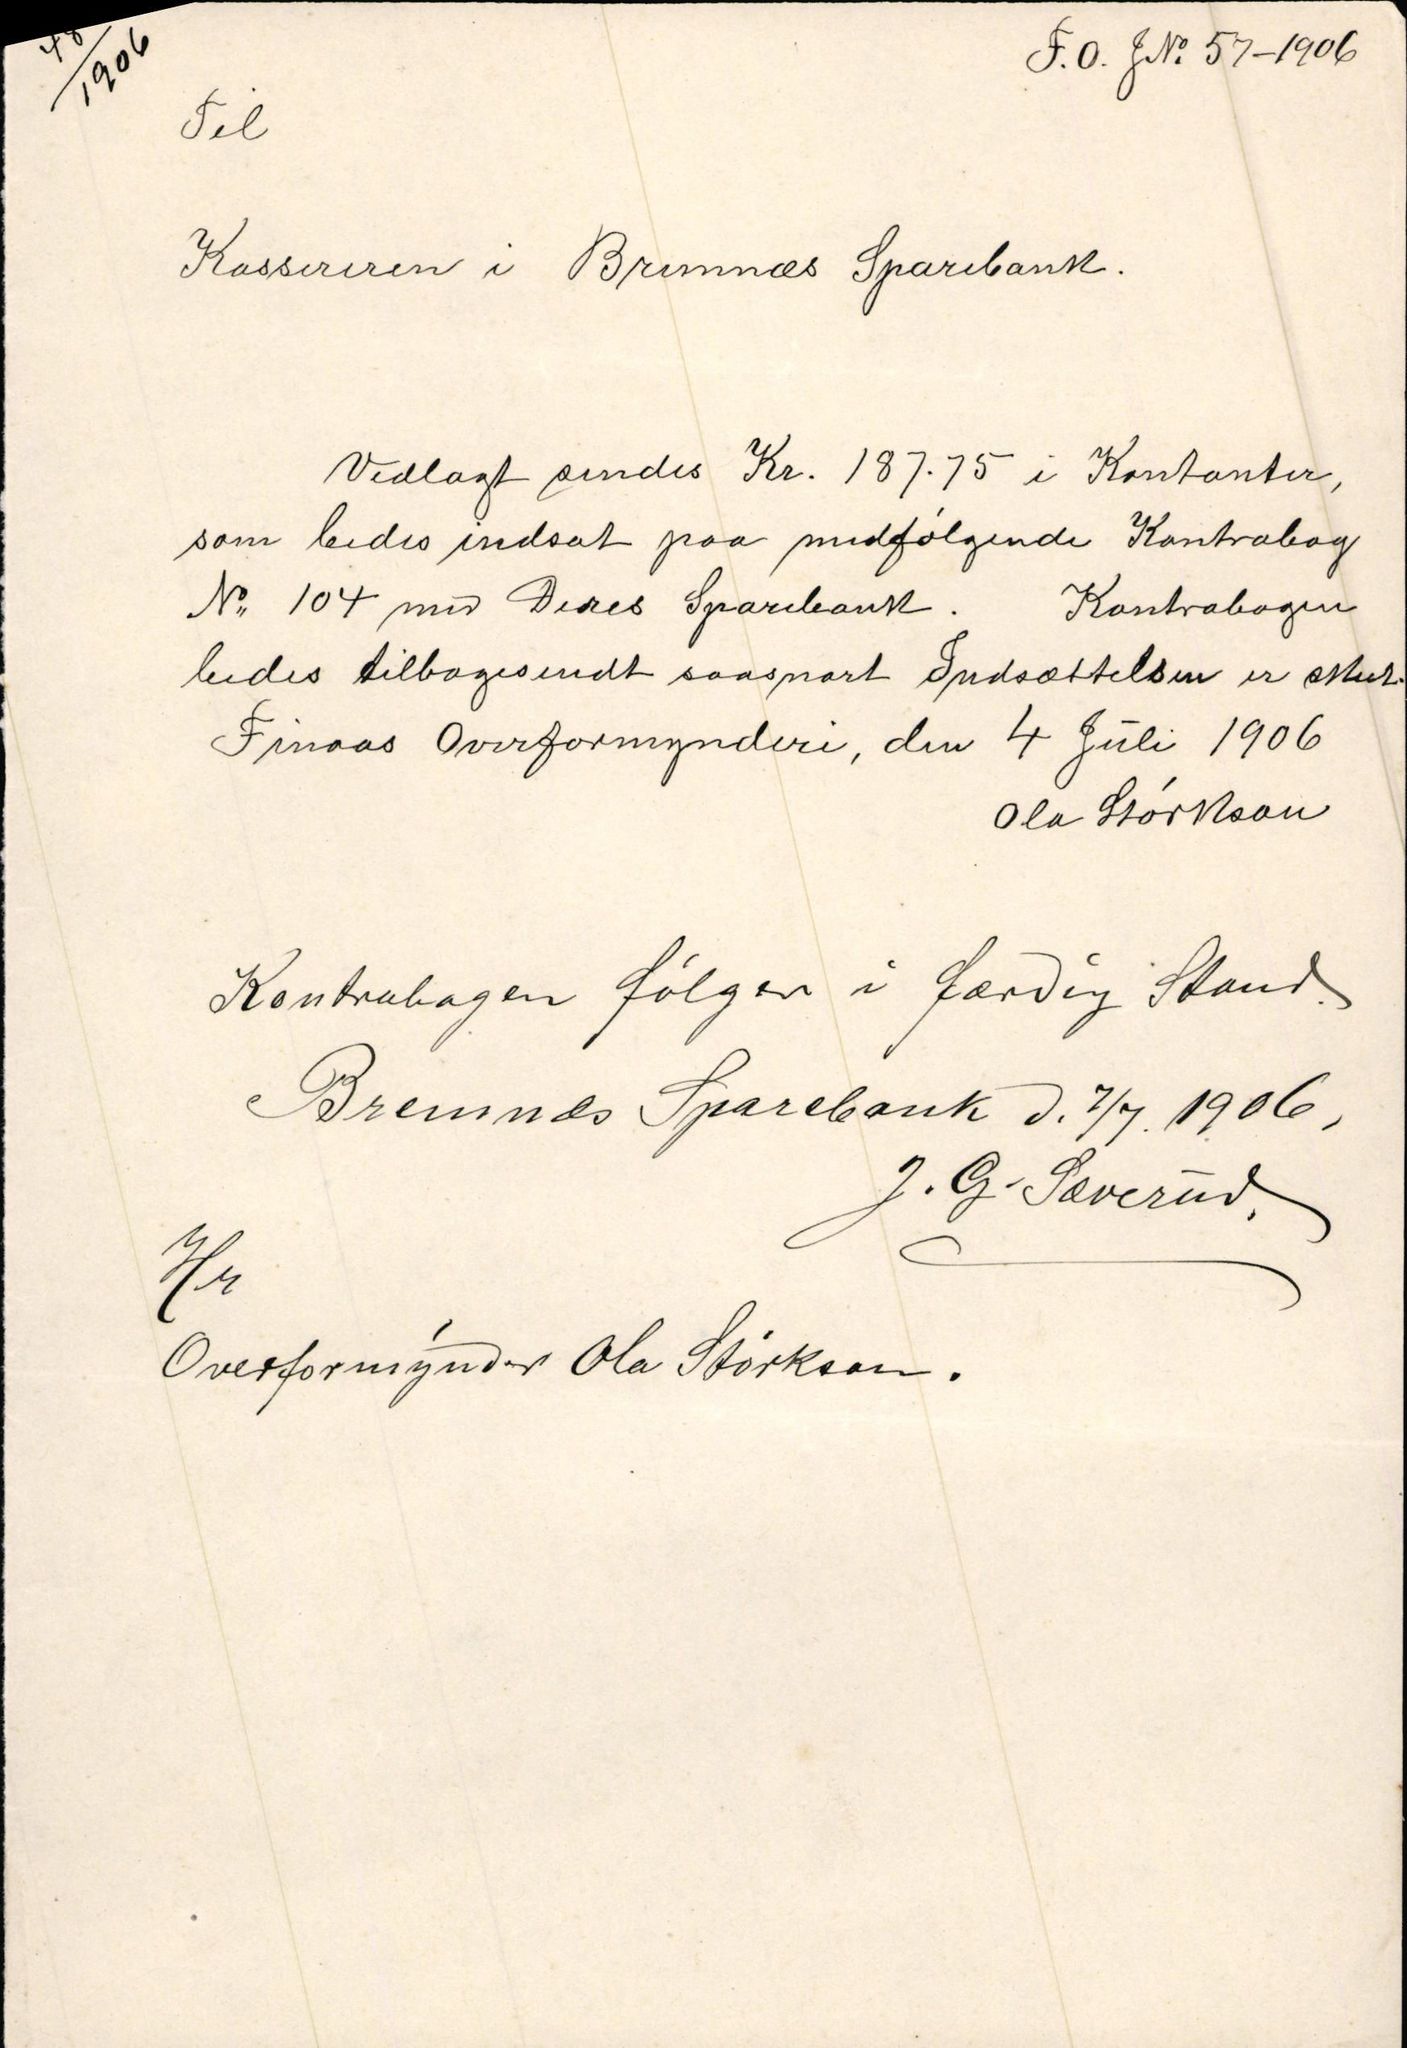 48/1906
F.O. JNo. 57-1906
Til
Kassereren i Bremnæs Sparebank.
Vedlagt sendes Kr. 187.75 i Kontanter,
som bedes indsat paa medfølgende Kontrabog
No. 104 med Deres Sparebank. Kontrabogen
bedes tilbagesendt saasnart Indsættelsen er
Finaas Overformynderi, den 4 Juli 1906
Ola Størkson
Kontrabogen følger i færdig Stand.
Bremnæs Sparebank d. 7/7. 1906,
J. G. Sæverud.
Hr
Overformynder Ola Størkson.